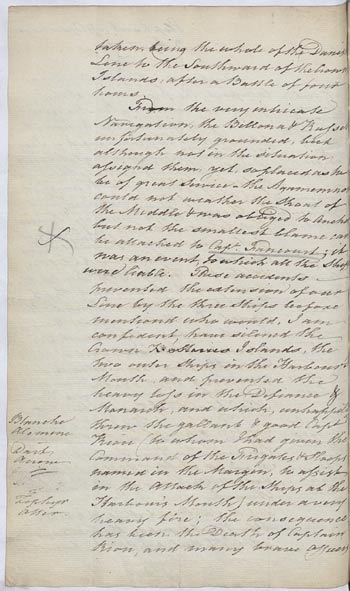 taken, being the whole of the Danish
Line to the Southward of the Crown
Islands, after a Battle of four
hours.
From the very intricate
Navigation, the Bellona & Russel
unfortunately grounded, but
although not in the situation
assigned them, yet so placed as to
be of great Service. the Agamemnon
could not weather the Shoal of
the Middle & was obliged to Anchor
but not the smallest blame can
be attached to Capt. Fancourt; it
was an event to which all the Ships
were liable. These accidents
prevented the extension of our
Line by the three Ships before
mentioned who would, I am
confident, have silenced the
Crown Islands, the
two outer Ships in the Harbour's
Mouth, and prevented the
heavy loss in the Defiance &
Monarch, and which, unhappily
threw the gallant & good Captn
Riou (to whom I had given the
Command of the Frigates & Sloops
named in the Margin, to assist
in the Attack of the Ships at the
Harbour's Mouth) under a very
heavy fire; the consequence
has been the Death of Captain
Riou, and many brave Officers
Blanche
Alcmene
Dart
Arrow
Zephyr
Otter